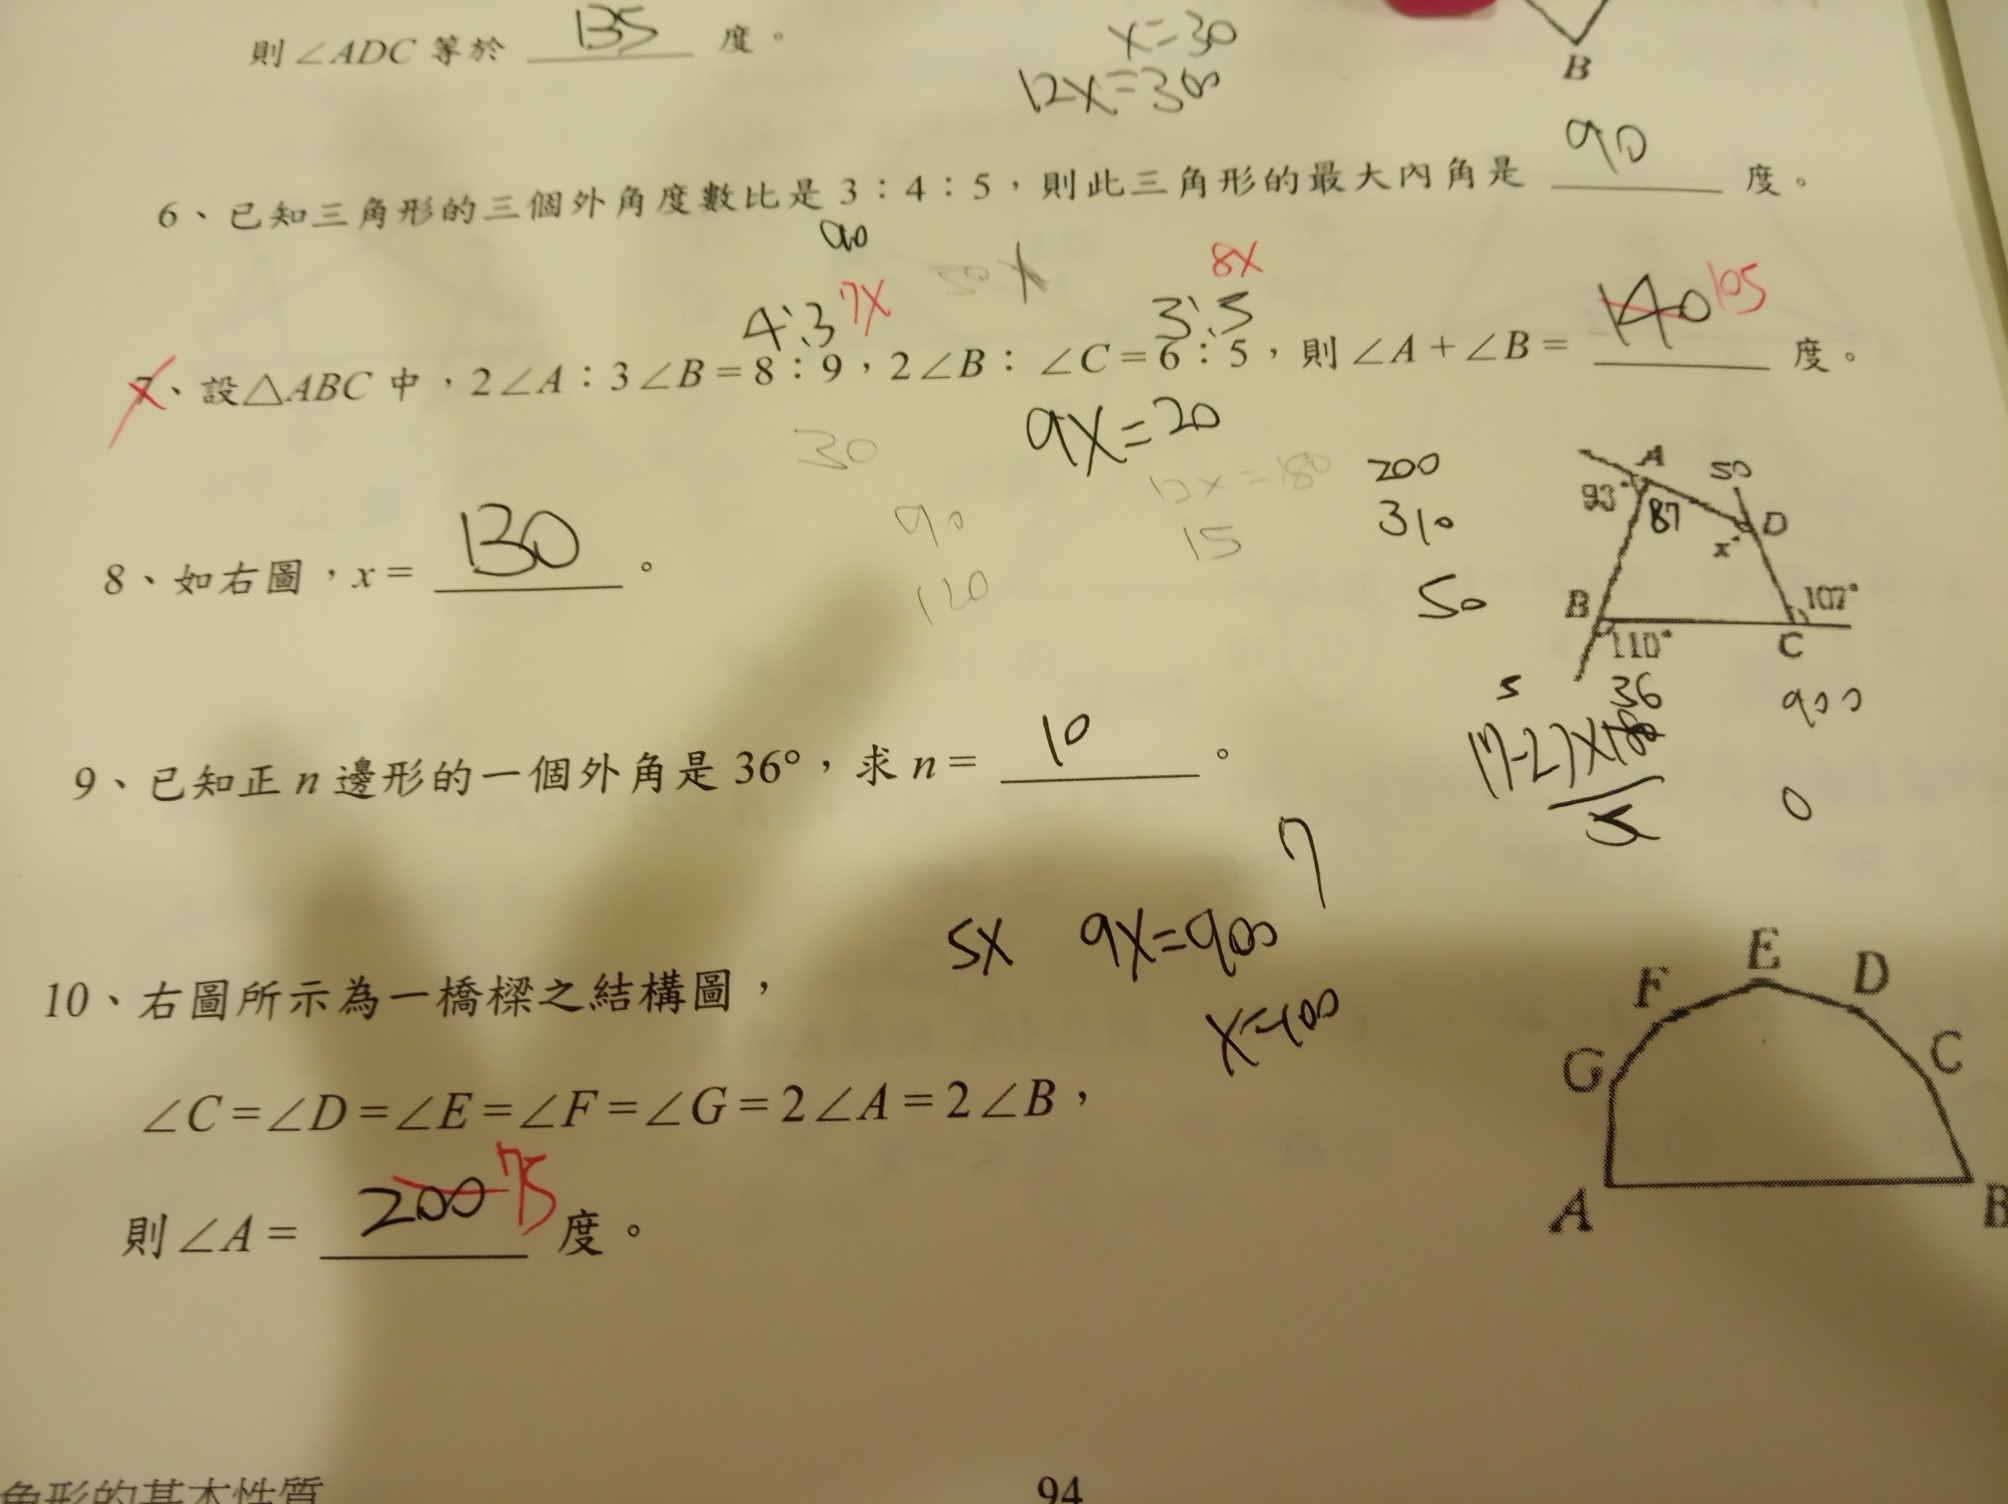 則∠ADC 等於 135 度。
x=30
12x=300
B
90
6、已知三角形的三個外角度數比是 3：4：5，則此三角形的最大內角是 度。
90
4:3 7x
8x
3:5
140 105
7、設△ABC 中，2∠A：3∠B＝8：9，2∠B：∠C＝6：5，則∠A＋∠B＝ 度。
30
9x=20
12x=180
90
15
120
200
310
50
A
50
93°
87
D
x°
B
107°
110°
C
8、如右圖，x＝ 130 。
5
36
900
(7-2)×180
5
0
9、已知正 n 邊形的一個外角是 36°，求 n＝ 10 。
7
5x 9x=900
x=100
10、右圖所示為一橋樑之結構圖，
∠C＝∠D＝∠E＝∠F＝∠G＝2∠A＝2∠B，
則∠A＝ 200 75 度。
E
F
D
G
C
A
B
角形的基本性質
94